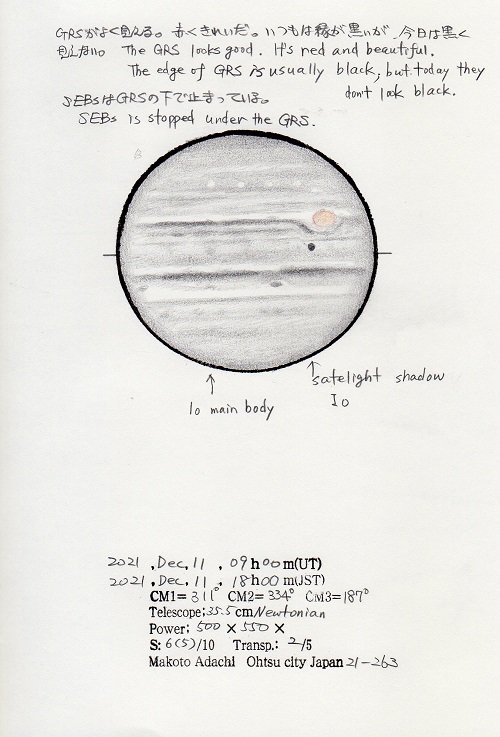 GRSがよく見える。赤くきれいだ。いつもは縁が黒いが、今日は黒く
見えない。 The GRS looks good. It's red and beautiful.
The edge of GRS is usually black, but today they
don't look black.
SEBsはGRSの下で止まっている。
SEBs is stopped under the GRS.
Io main body
satelight shadow
Io
2021 ,Dec,11 , 09h00m(UT)
2021 ,Dec,11 , 18h00m(JST)
CM1= 311° CM2= 334° CM3=187°
Telescope;35.5cm Newtonian
Power; 500 × 550 ×
S: 6(5)/10 Transp.: 2/5
Makoto Adachi Ohtsu city Japan 21-263